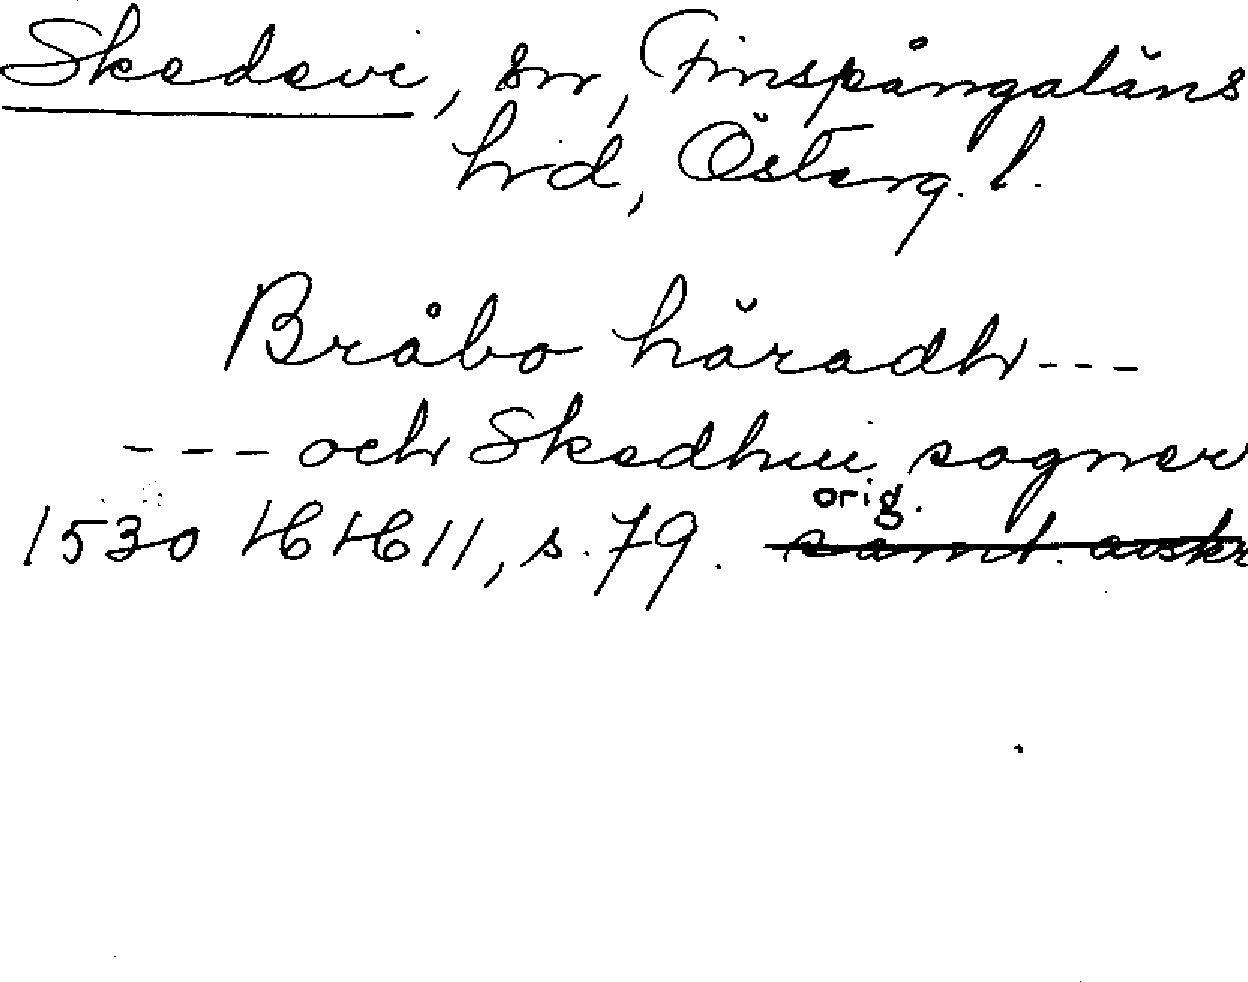 Skedevi, sn, Finspångaläns
hd, Österg. l.
Bråbo häradh ---
--- och Skedhui sogner
1530 HH 11, s. 79. orig. samt. avskr